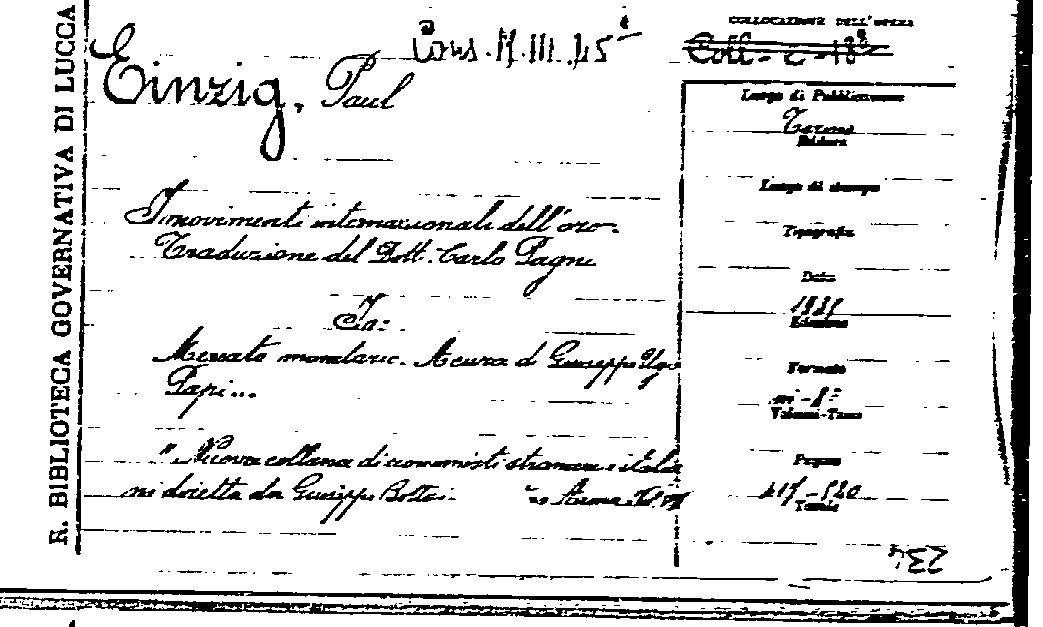 R. BIBLIOTECA GOVERNATIVA DI LUCCA
Einzig, Paul
Cons. N. III. 45
I movimenti internazionali dell'oro.
Traduzione del Dott. Carlo Pagni
In:
Mercato monetario. A cura di Giuseppe Ugo
Papi...
"Nuova collana di economisti stranieri e italia
ni diretta da Giuseppe Bottai.
COLLOCAZIONE DELL'OPERA
Coll - C - 18
Luogo di Pubblicazione
Torino
Editore
Luogo di stampa
Tipografia
Data
Edizione
Formato
in-8°
Volumi-Tomo
Pagine
Tavole
234